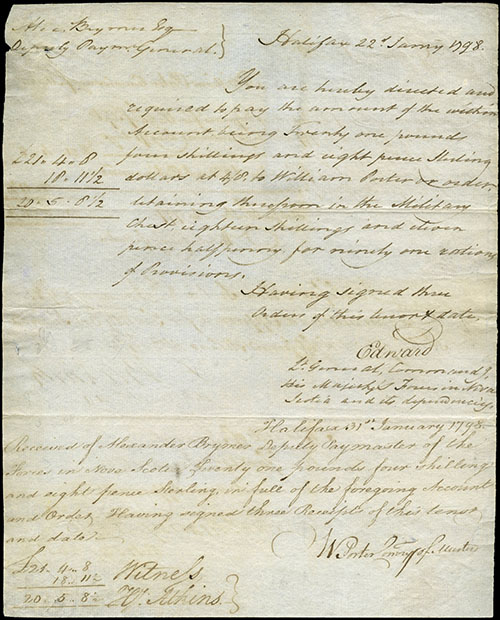 Alex Brymer Esq
Deputy Paym. General.
Halifax 22d Janry 1798.
You are hereby directed and
required to pay the amount of the within
Account being Twenty one pounds
four shillings and eight pence Sterling
dollars at 4/8 to William Porter or order,
retaining thereupon in the Military
Chest eighteen Shillings and eleven
pence half penny for ninety one rations
of Provisions.
£21. 4. 8
18. 11½
20. 5. 8½
Having signed three
Orders of this tenor & date,
Edward
Lt General, Command'g
His Majesty's Forces in Nova
Scotia and its dependencies
Halifax 31st January 1798.
Received of Alexander Brymer Deputy Paymaster of the
Forces in Nova Scotia Twenty one pounds four shilling
and eight pence Sterling, in full of the foregoing Account
and Order, Having signed three Receipts of this tenor
and date.
W Porter of Muster
£21. 4. 8
18. 11½
20. 5. 8½
Witness
W. Atkins.